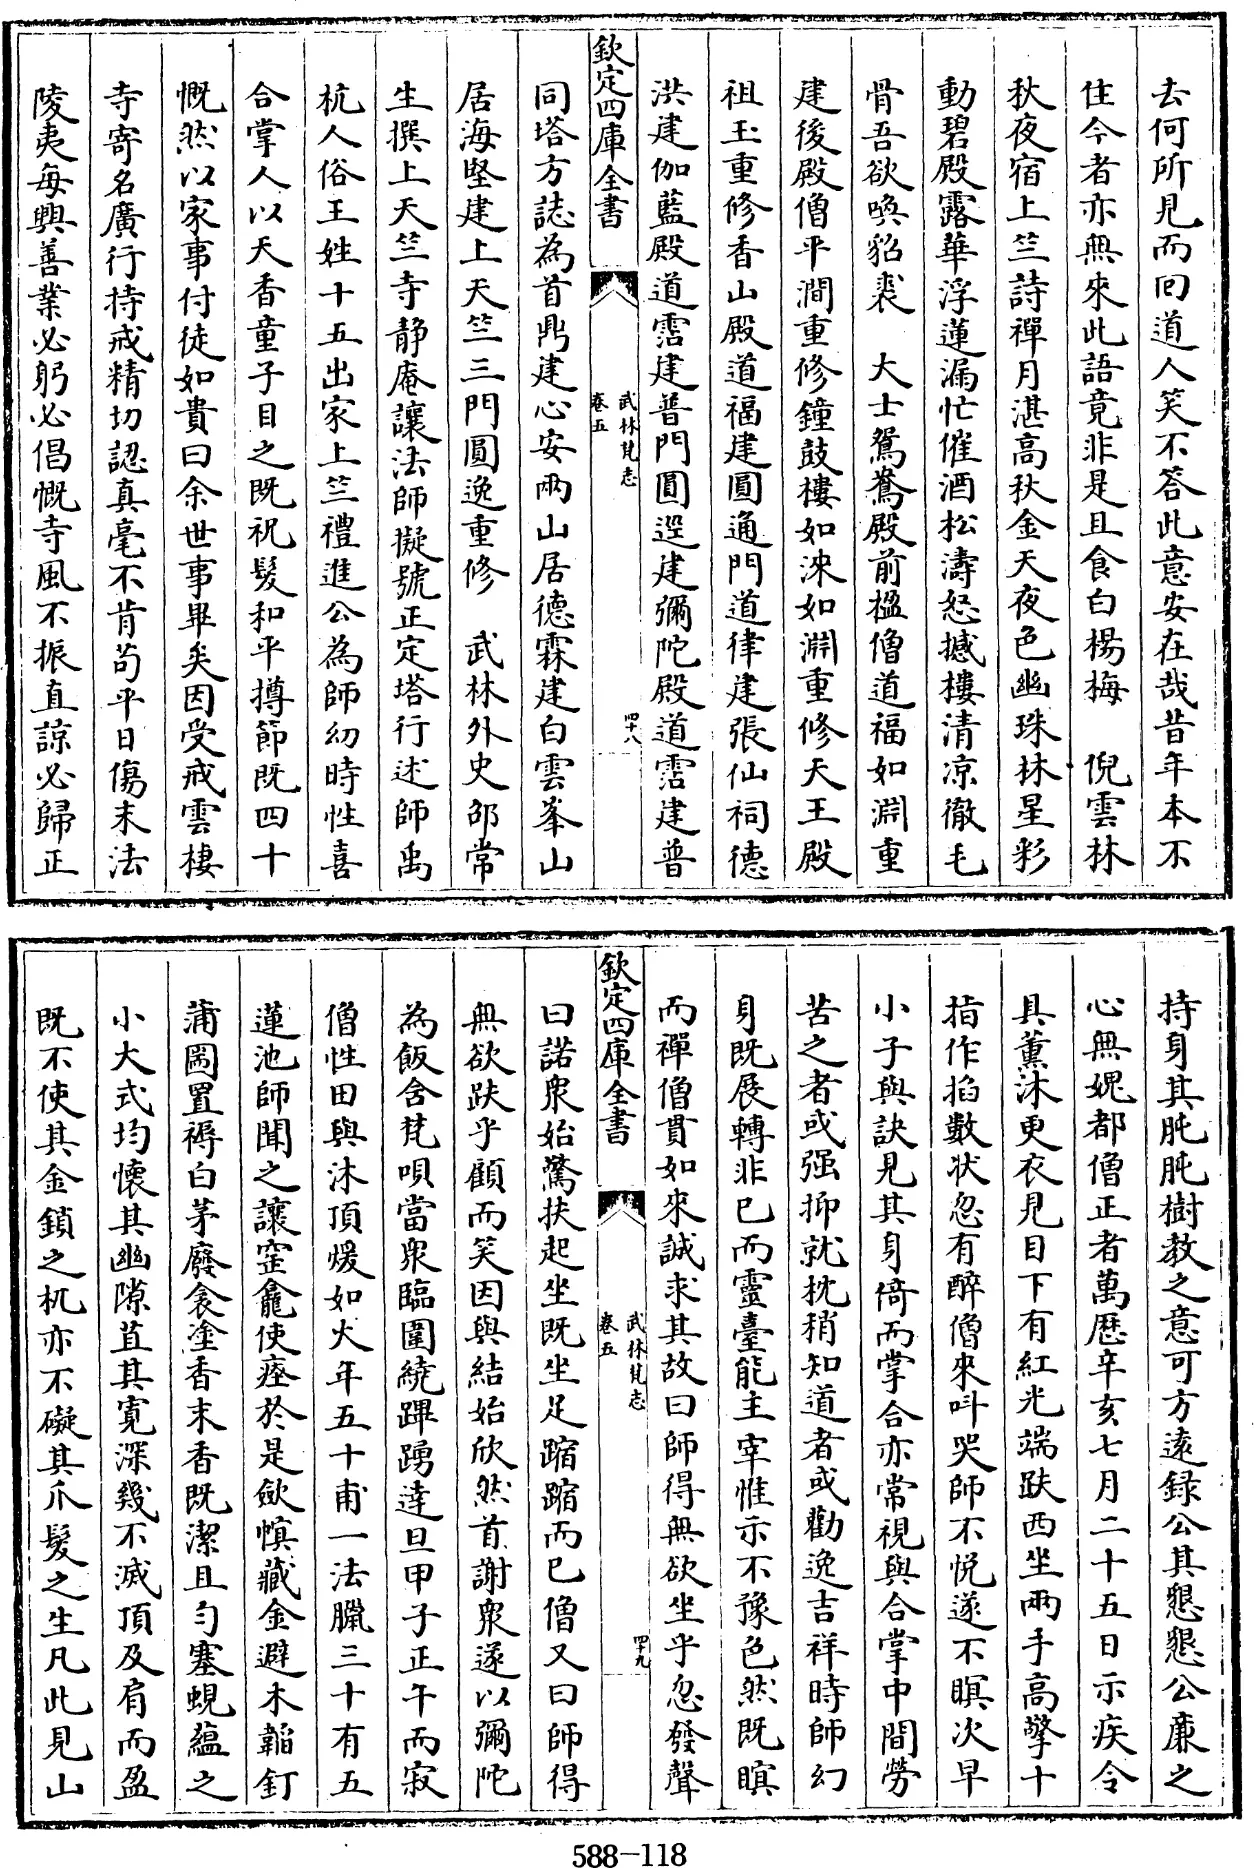 去何所見而回道人笑不答此意安在哉昔年本不
住今者亦無來此語竟非是且食白楊梅　倪雲林
秋夜宿上竺詩禪月湛高秋金天夜色幽珠林星彩
動碧殿露華浮蓮漏忙催酒松濤怒撼樓清凉徹毛
骨吾欲喚貂裘　大士鴛鴦殿前楹僧道福如淵重
建後殿僧平澗重修鐘鼓樓如淶如淵重修天王殿
祖玉重修香山殿道福建圓通門道律建張仙祠德
洪建伽藍殿道霑建普門圓逕建彌陀殿道霑建普
欽定四庫全書
武林梵志
卷五
四十八
同塔方誌為首鼎建心安兩山居德霖建白雲峯山
居海堅建上天竺三門圓逸重修　武林外史邵常
生撰上天竺寺靜庵讓法師擬號正定塔行述師禹
杭人俗王姓十五出家上竺禮進公為師幼時性喜
合掌人以天香童子目之既祝髮和平撙節既四十
慨然以家事付徒如貴曰余世事畢矣因受戒雲棲
寺寄名廣行持戒精切認真毫不肯苟平日傷末法
陵夷每興善業必躬必倡慨寺風不振直諒必歸正
持身其肫肫樹教之意可方遠録公其懇懇公廉之
心無媿都僧正者萬厯辛亥七月二十五日示疾令
具薰沐更衣見目下有紅光端趺西坐兩手高擎十
指作掐數狀忽有醉僧來叫哭師不悅遂不瞑次早
小子與訣見其身倚而掌合亦常視與合掌中間勞
苦之者或强抑就枕稍知道者或勸逸吉祥時師幻
身既展轉非已而靈臺能主宰惟示不豫色然既瞑
而禪僧貫如來誠求其故曰師得無欲坐乎忽發聲
欽定四庫全書
武林梵志
卷五
四十九
曰諾衆始驚扶起坐既坐足蹜蹜而已僧又曰師得
無欲趺乎顧而笑因與結始欣然首謝衆遂以彌陀
為飯含梵唄當衆臨圍繞踝踴達旦甲子正午而寂
僧性田與沐頂煖如火年五十甫一法臘三十有五
蓮池師聞之讓窆龕使瘞於是歛幎藏金避木韜釘
蒲圌置褥白茅廢衾塗香末香既潔且勻塞蜆蘊之
小大式均懷其幽隙苴其寬深幾不滅頂及肩而盈
既不使其金鎖之机亦不礙其爪髮之生凡此見山
588-118